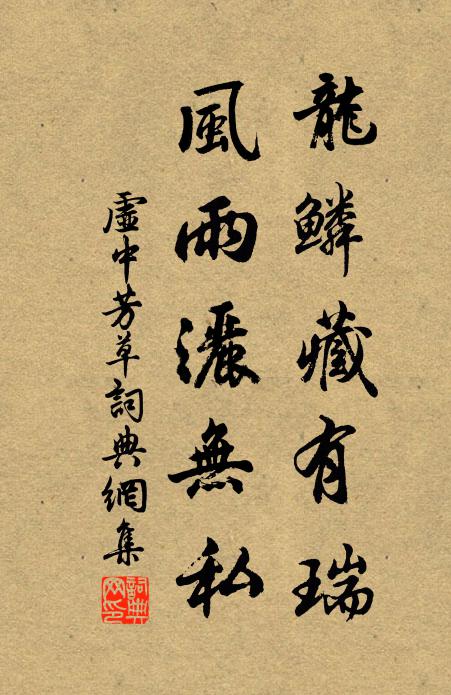 龍鱗藏有瑞
風雨灑無私
虛中芳草詞典網集
詞典
网印